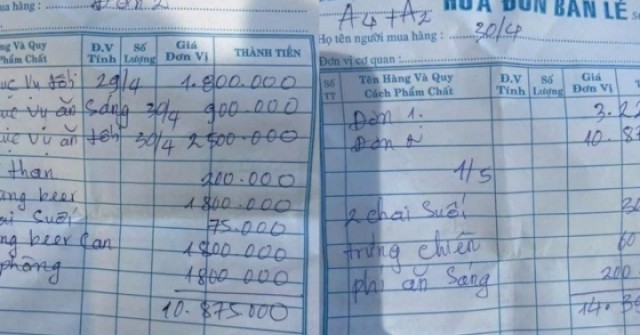 ua hàng :
Đơn 2
ng Và Quy
hẩm Chất
Đ.V
Tính
Số
Lượng
Giá
Đơn Vị
THÀNH TIỀN
ục vụ tối 29/4 1.800.000
ục vụ ăn sáng 30/4 900.000
ục vụ ăn tối 30/4 2500.000
than 200.000
ng beer 1800.000
ai Suối 75.000
ng beer Can 1800.000
phòng 1800 000
10.875.000
HÓA ĐƠN BÁN LẺ
A4 + A2
Họ tên người mua hàng : 30/4
Đơn vị cơ quan :
Số
TT
Tên Hàng Và Quy
Cách Phẩm Chất
Đ.V
Tính
Số
Lượng
Giá
Đơn Vị
Đơn 1. 3.2
Đơn 2 10.8
1/5
2 chai Suối
trứng chiên 60
phí ăn Sáng 200
14.3